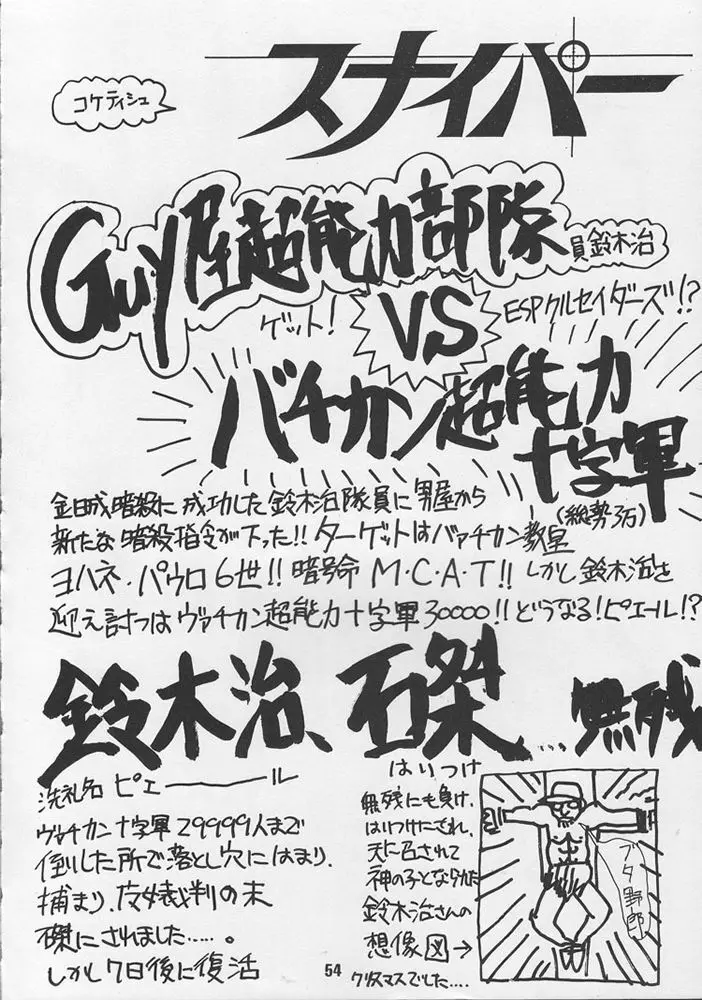 スナイパー
コケティシュ
Guy屋超能力部隊
員鈴木治
ゲット!
VS
ESPクルセイダーズ!?
バチカン超能力
十字軍
(総勢3万)
金日成暗殺に成功した鈴木治隊員に男屋から
新たな暗殺指令が下った!!ターゲットはバァチカン教皇
ヨハネ・パウロ6世!!暗号命M・C・A・T!!しかし鈴木治を
迎え討つはヴァチカン超能力十字軍30000!!どうなる!ピエール!?
鈴木治、石桀…無残
はりつけ
洗礼名ピエーール
ヴァチカン十字軍29999人まで
倒した所で落とし穴にはまり、
捕まり、女裁判の末
磔にされました……。
しかし7日後に復活
無残にも負け、
はりつけにされ、
天に召されて
神の子となられた
鈴木治さんの
想像図→
クリスマスでした….
ブタ野郎
54